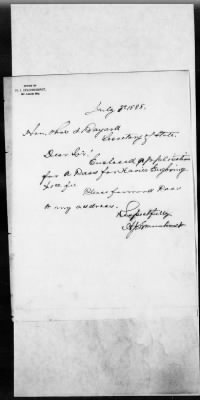 OFFICE OF
July 3d 1888.
Hon. Thos F Bayard
Secretary of State.
Dear Sir:
Enclosed application
for a Pass for Xavier
fee
Please forward Pass
to my address.
Respectfully